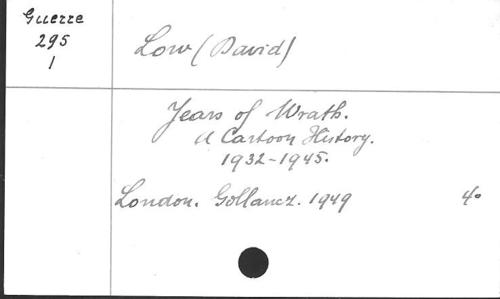 Guerre
295
1
Low (David)
Years of Wrath.
A Cartoon History.
1932-1945.
London. Gollancz. 1949 4º